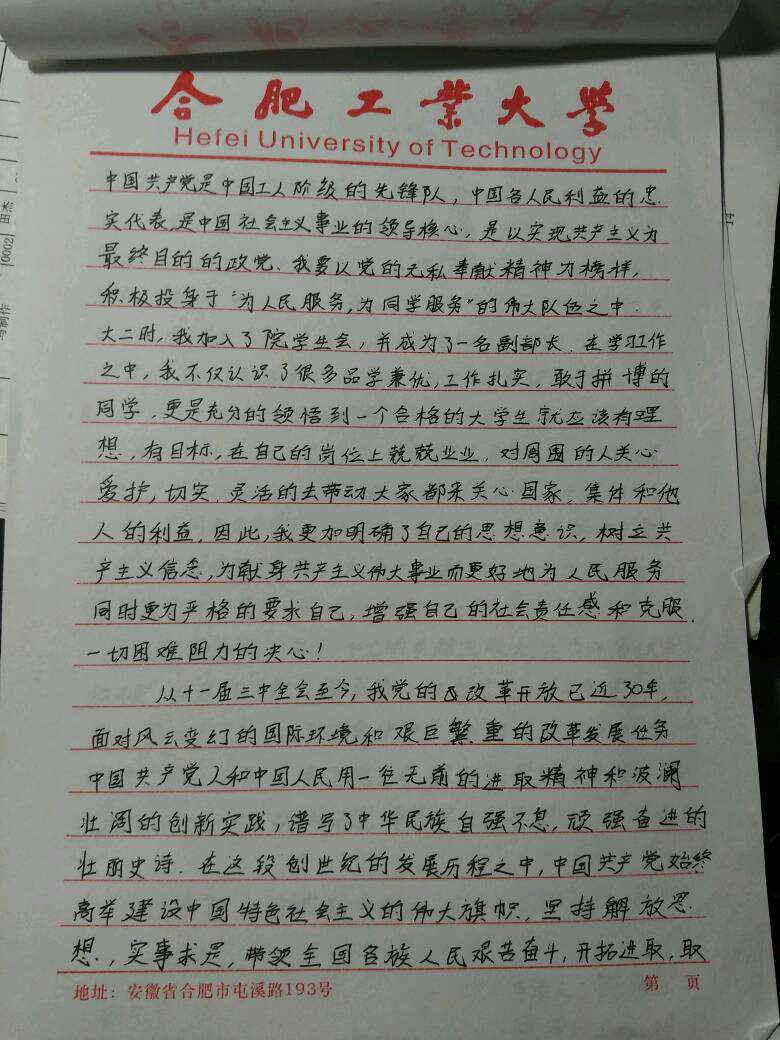 合肥工业大学
Hefei University of Technology
中国共产党是中国工人阶级的先锋队，中国各人民利益的忠
实代表，是中国社会主义事业的领导核心，是以实现共产主义为
最终目的的政党、我要以党的无私奉献精神为榜样，
积极投身于“为人民服务，为同学服务”的伟大队伍之中.
大二时，我加入了院学生会，并成为了一名副部长．在学习工作
之中，我不仅认识了很多品学兼优，工作扎实，敢于拼博的
同学．更是充分的领悟到一个合格的大学生就应该有理
想，有目标，在自己的岗位上兢兢业业．对周围的人关心
爱护，切实．灵活的去带动大家都来关心国家．集体和他
人的利益．因此，我更加明确了自己的思想意识，树立共
产主义信念，为献身共产主义伟大事业而更好地为人民服务
同时更为严格的要求自己，增强自己的社会责任感和克服
一切困难阻力的决心！
从十一届三中全会至今，我党的改革开放已近30年，
面对风云变幻的国际环境和艰巨繁重的改革发展任务
中国共产党人和中国人民用一往无前的进取精神和波澜
壮阔的创新实践，谱写了中华民族自强不息，顽强奋进的
壮丽史诗．在这段创世纪的发展历程之中，中国共产党始终
高举建设中国特色社会主义的伟大旗帜．坚持解放思
想，实事求是，带领全国各族人民艰苦奋斗，开拓进取，取
地址：安徽省合肥市屯溪路193号
第 页
0002
14